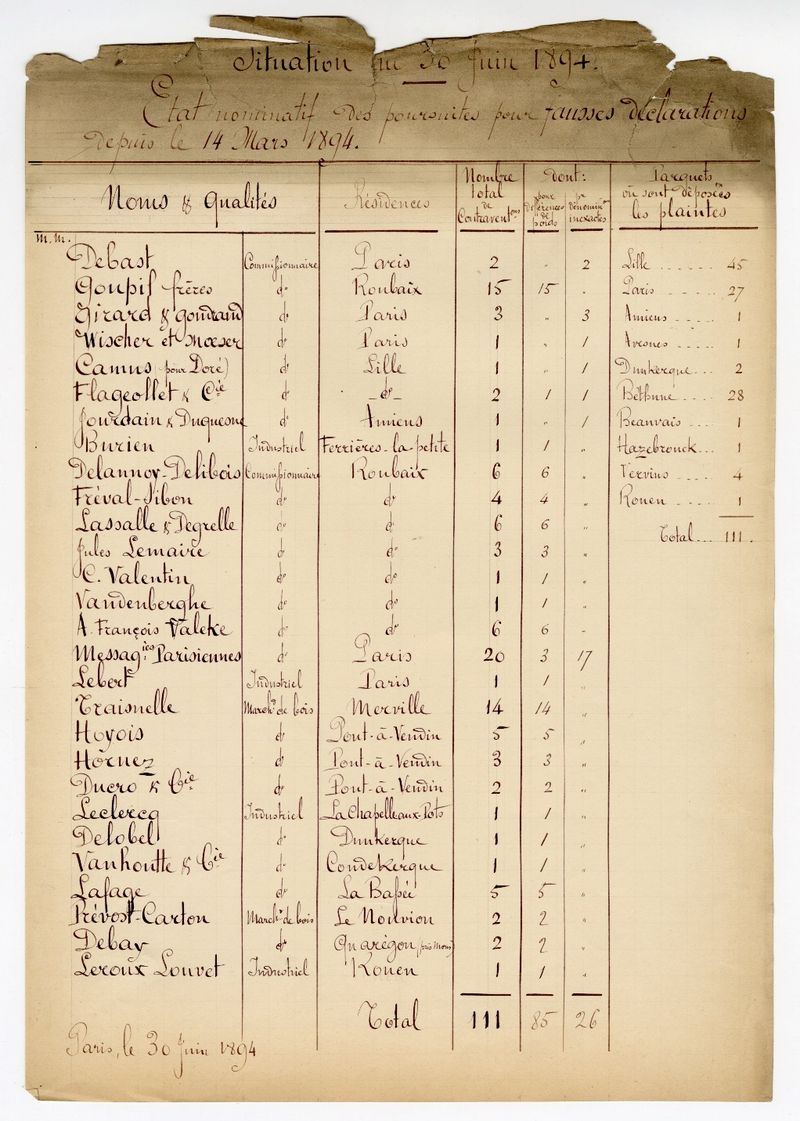 Situation au 30 Juin 1894.
Etat nominatif des poursuites pour fausses déclarations
depuis le 14 Mars 1894.
Noms & Qualités Résidences Nombre total de Contravent.ons dont: pour différences de poids pr dénomin.on inexactes Parquets où sont déposées les plaintes
M.M.
Debast Commissionnaire Paris 2 " 2 Lille ...... 45
Goupil frères do Roubaix 15 15 " Paris ..... 27
Girard & Gondrand do Paris 3 " 3 Amiens ..... 1
Wischer et Mœser do Paris 1 " 1 Avesnes .... 1
Camus (pour Doré) do Lille 1 " 1 Dunkerque ... 2
Flageollet & Cie do -do- 2 1 1 Béthune .... 28
Jourdain & Duquesne do Amiens 1 " 1 Beauvais .... 1
Burien Industriel Ferrières-la-petite 1 1 " Hazebrouck ... 1
Delannoy-Delibois Commissionnaire Roubaix 6 6 " Vervins .... 4
Fréval-Sibon do do 4 4 " Rouen .... 1
Lassalle & Degrelle do do 6 6 "
Total ... 111.
Jules Lemaire do do 3 3 "
C. Valentin do do 1 1 "
Vandenberghe do do 1 1 "
A. François Valcke do do 6 6 "
Messagies Parisiennes do Paris 20 3 17
Lebert Industriel Paris 1 1 "
Traisnelle March.d de bois Merville 14 14 "
Hoyois do Pont-à-Vendin 5 5 "
Hornez do Pont-à-Vendin 3 3 "
Ducro & Cie do Pont-à-Vendin 2 2 "
Leclercq Industriel La Chapelle aux Pots 1 1 "
Delobel do Dunkerque 1 1 "
Vanhoutte & Cie do Condekerque 1 1 "
Lafage do La Bassée 5 5 "
Prévost-Carton March.d de bois Le Nouvion 2 2 "
Debay do Quarégon (près Mons) 2 2 "
Leroux Louvet Industriel Rouen 1 1 "
Total 111 85 26
Paris, le 30 Juin 1894